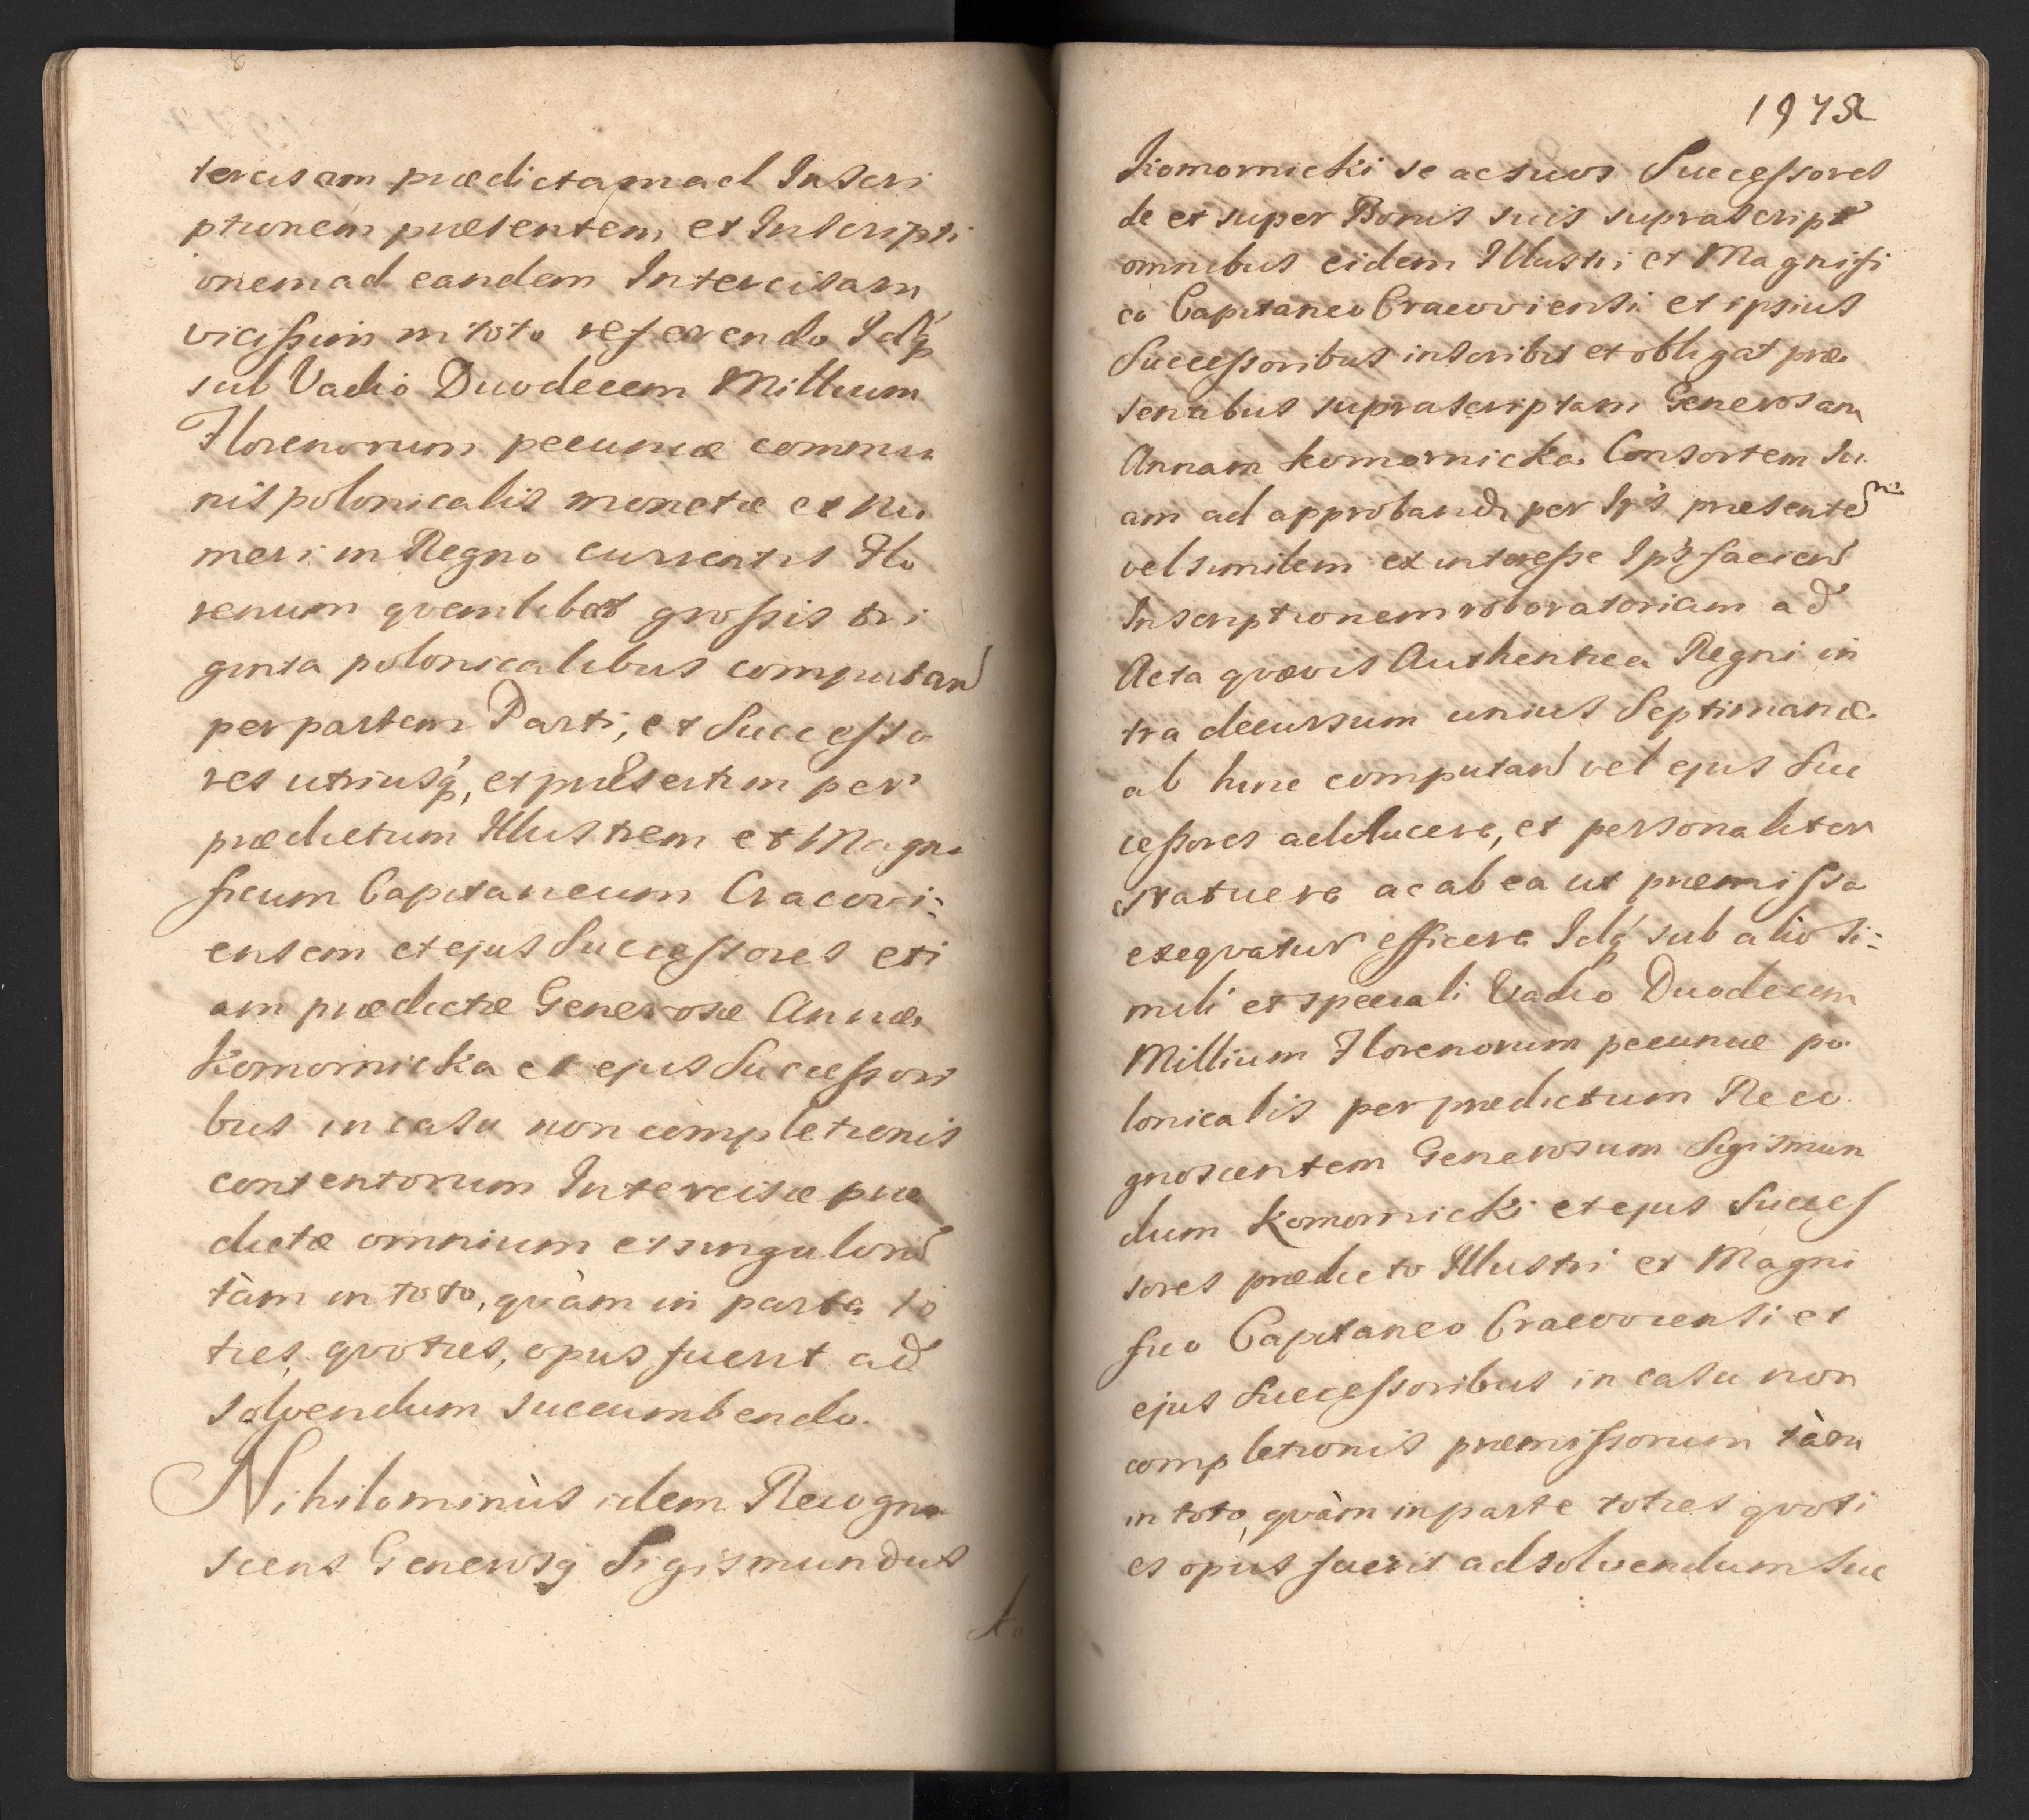 tercisam prædictam ad Inscri
ptionem præsentem et Inscripti
onem ad eandem Intercisam
vicissim in toto referendo Idq́
sub Vadio Duodecem Millium
Florenorum pecuniæ commu
nis polonicalis monetæ et nu
meri in Regno currentis Flo
renum qvemlibet grossis tri
ginta polonicalibus computan
per partem Parti, et Successo
res utriusq́, et præsertim per
prædictum Illustrem et Magni
ficum Capitaneum Cracovi:
ensem et ejus Successores eti
am prædictæ Generosæ Annæ
Komornicka et ejus Successori
bus in casu non completionis
contentorum Intercisæ præ
dictæ omnium et singulor
tàm in toto, qvàm in parte to
ties, qvoties, opus fuerit ad
solvendum succumbendo.
Nihilominùs idem Recogno
scens Generosq Sigismundus
Ko
1972
Komornicki se ac suos Successores
de et super Bonis suis suprascript
omnibus eidem Illustri et Magnifi
co Capitaneo Cracoviensi et ipsius
Successoribus inscribit et obligat præ
senabus suprascriptam Generosam
Annam Komornicka Consortem Su
am ad approband per Ip's præsente
vel similem ex interesse Ip's facien
Inscriptionem roboratoriam ad
Acta qvævis Authentica Regni in
tra decursum unius Septimanæ
ab hinc computan vel ejus Suc
cessores adducere, et personaliter
statuere ac ab ea ut præmissa
exeqvatur efficere Idq́ sub alio si:
mili et speciali Vadio Duodecem
Millium Florenorum pecuniæ po
lonicalis per prædictum Reco.
gnoscentem Generosum Sigismun
dum Komornicki et ejus Succes
sores prædicto Illustri et Magni
fico Capitaneo Cracoviensi et
ejus Successoribus in casu non
completionis præmissorum tàm
in toto, qvàm in parte toties qvoti
es opus fuerit ad solvendum suc